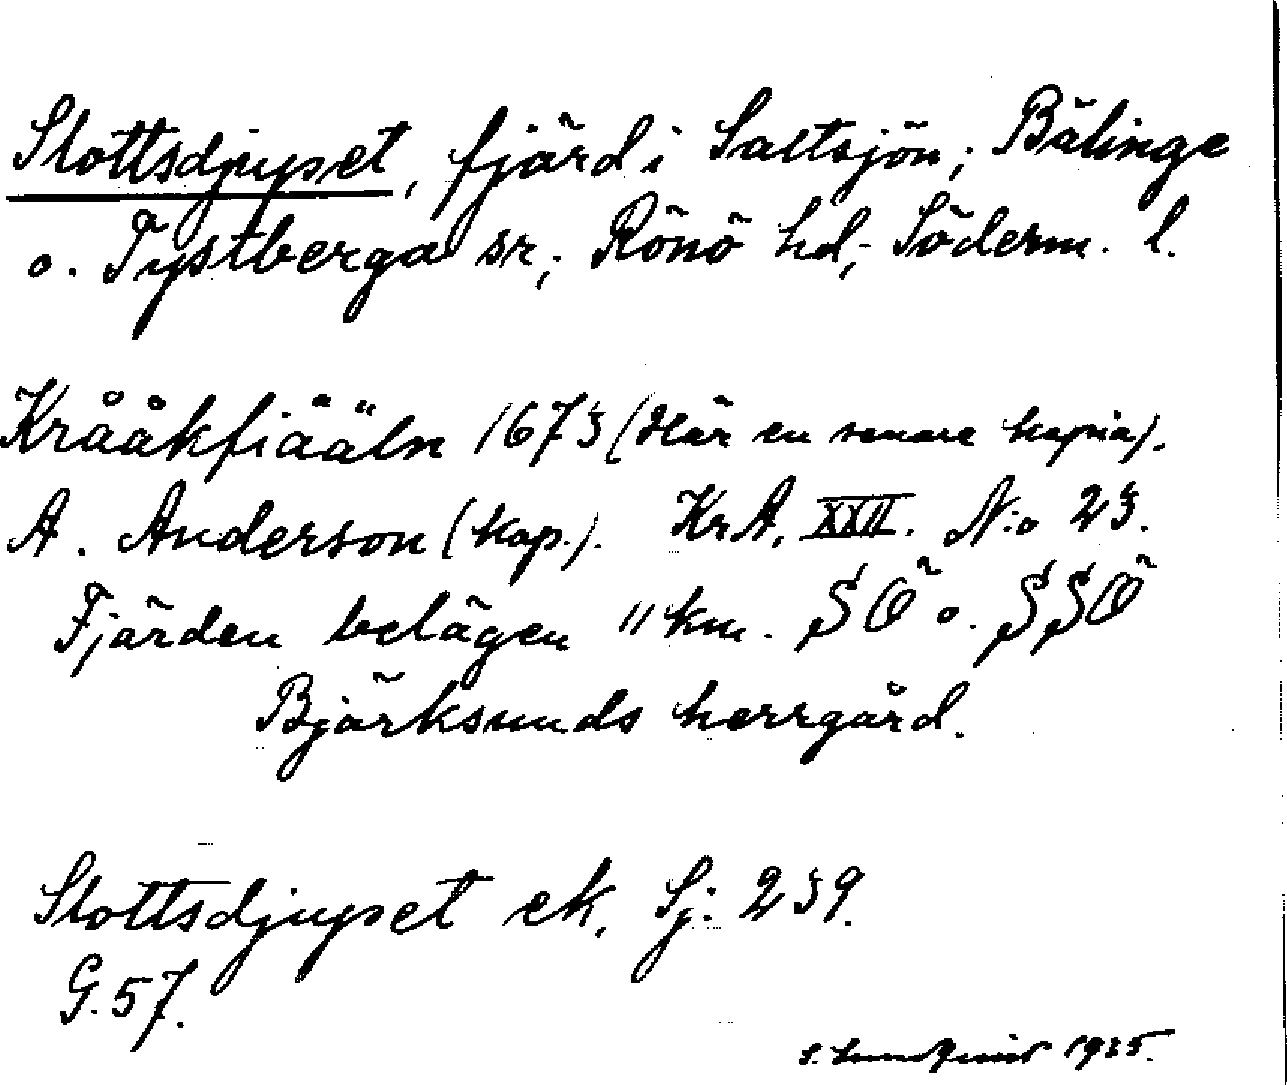 Slottsdjupet, fjärd i Saltsjön; Bälinge
o. Tystberga sr; Rönö hd; Söderm. l.
Krååkfiääln 1673 (Här en senare kopia).
A. Anderson (kop.). Kr.A. XXII. N:o 23.
Fjärden belägen 11 km. SÖ o. SSÖ
Björksunds herrgård.
Slottsdjupet ek. Sj. 239.
G. 57.
S. Lundquist 1935.